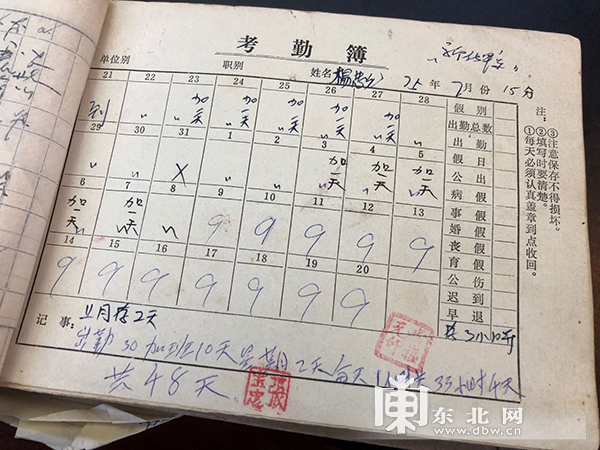 考勤簿
单位别 职别 姓名 75年7月份15分
21 22 23 24 25 26 27 28 假别
到 〃 加一天 〃 加一天 〃 加一天 出勤总数
29 30 31 1 2 3 4 5 出勤
〃 〃 X 〃 〃 加一天 加一天 加一天 假日
公出
6 7 8 9 10 11 12 13 病假
加一天 加一天 〃 9 9 9 9 9 事假
婚假
14 15 16 17 18 19 20 丧假
9 9 9 9 9 9 9 育假
公伤
迟到
早退
注：
①每天必须认真盖章到点收回。
②填写时要清楚。
③注意保存不得损坏。
记事： 上月存2天
出勤30加班10天星期2天每天
33小时4天
共48天
东北网
www.dbw.cn